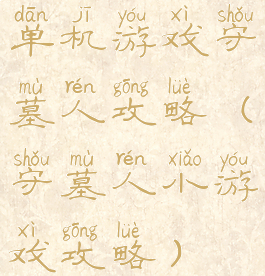 dān jī yóu xì shǒu
单机游戏守
mù rén gōng lüè
墓人攻略（
shǒu mù rén xiǎo yóu
守墓人小游
xì gōng lüè
戏攻略）